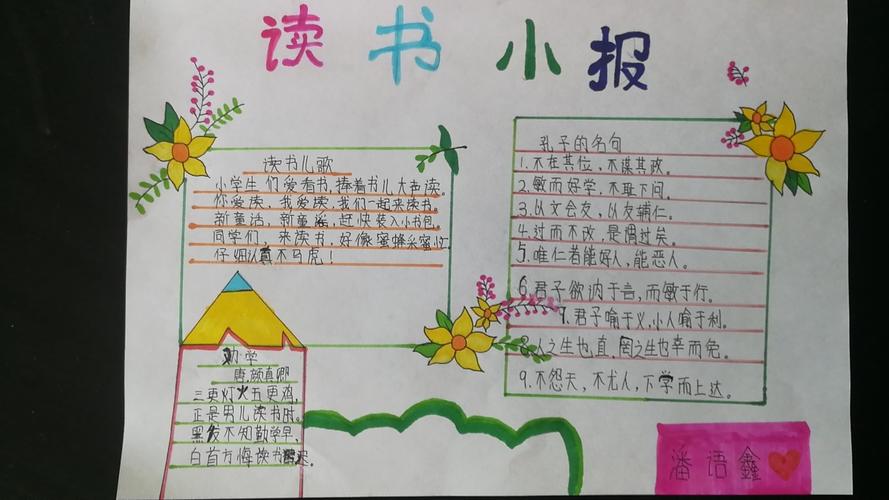 读书小报
读书儿歌
小学生们爱看书,捧着书儿大声读。
你爱读,我爱读,我们一起来读书。
新童话,新童谣,赶快装入小书包。
同学们,来读书,好像蜜蜂采蜜忙
仔细认真不马虎!
孔子的名句
1.不在其位,不谋其政。
2.敏而好学,不耻下问。
3.以文会友,以友辅仁。
4.过而不改,是谓过矣。
5.唯仁者能好人,能恶人。
6.君子欲讷于言,而敏于行。
7.君子喻于义,小人喻于利。
8.人之生也直,罔之生也幸而免。
9.不怨天,不尤人,下学而上达。
劝学
唐颜真卿
三更灯火五更鸡,
正是男儿读书时。
黑发不知勤学早,
白首方悔读书迟。
潘语鑫